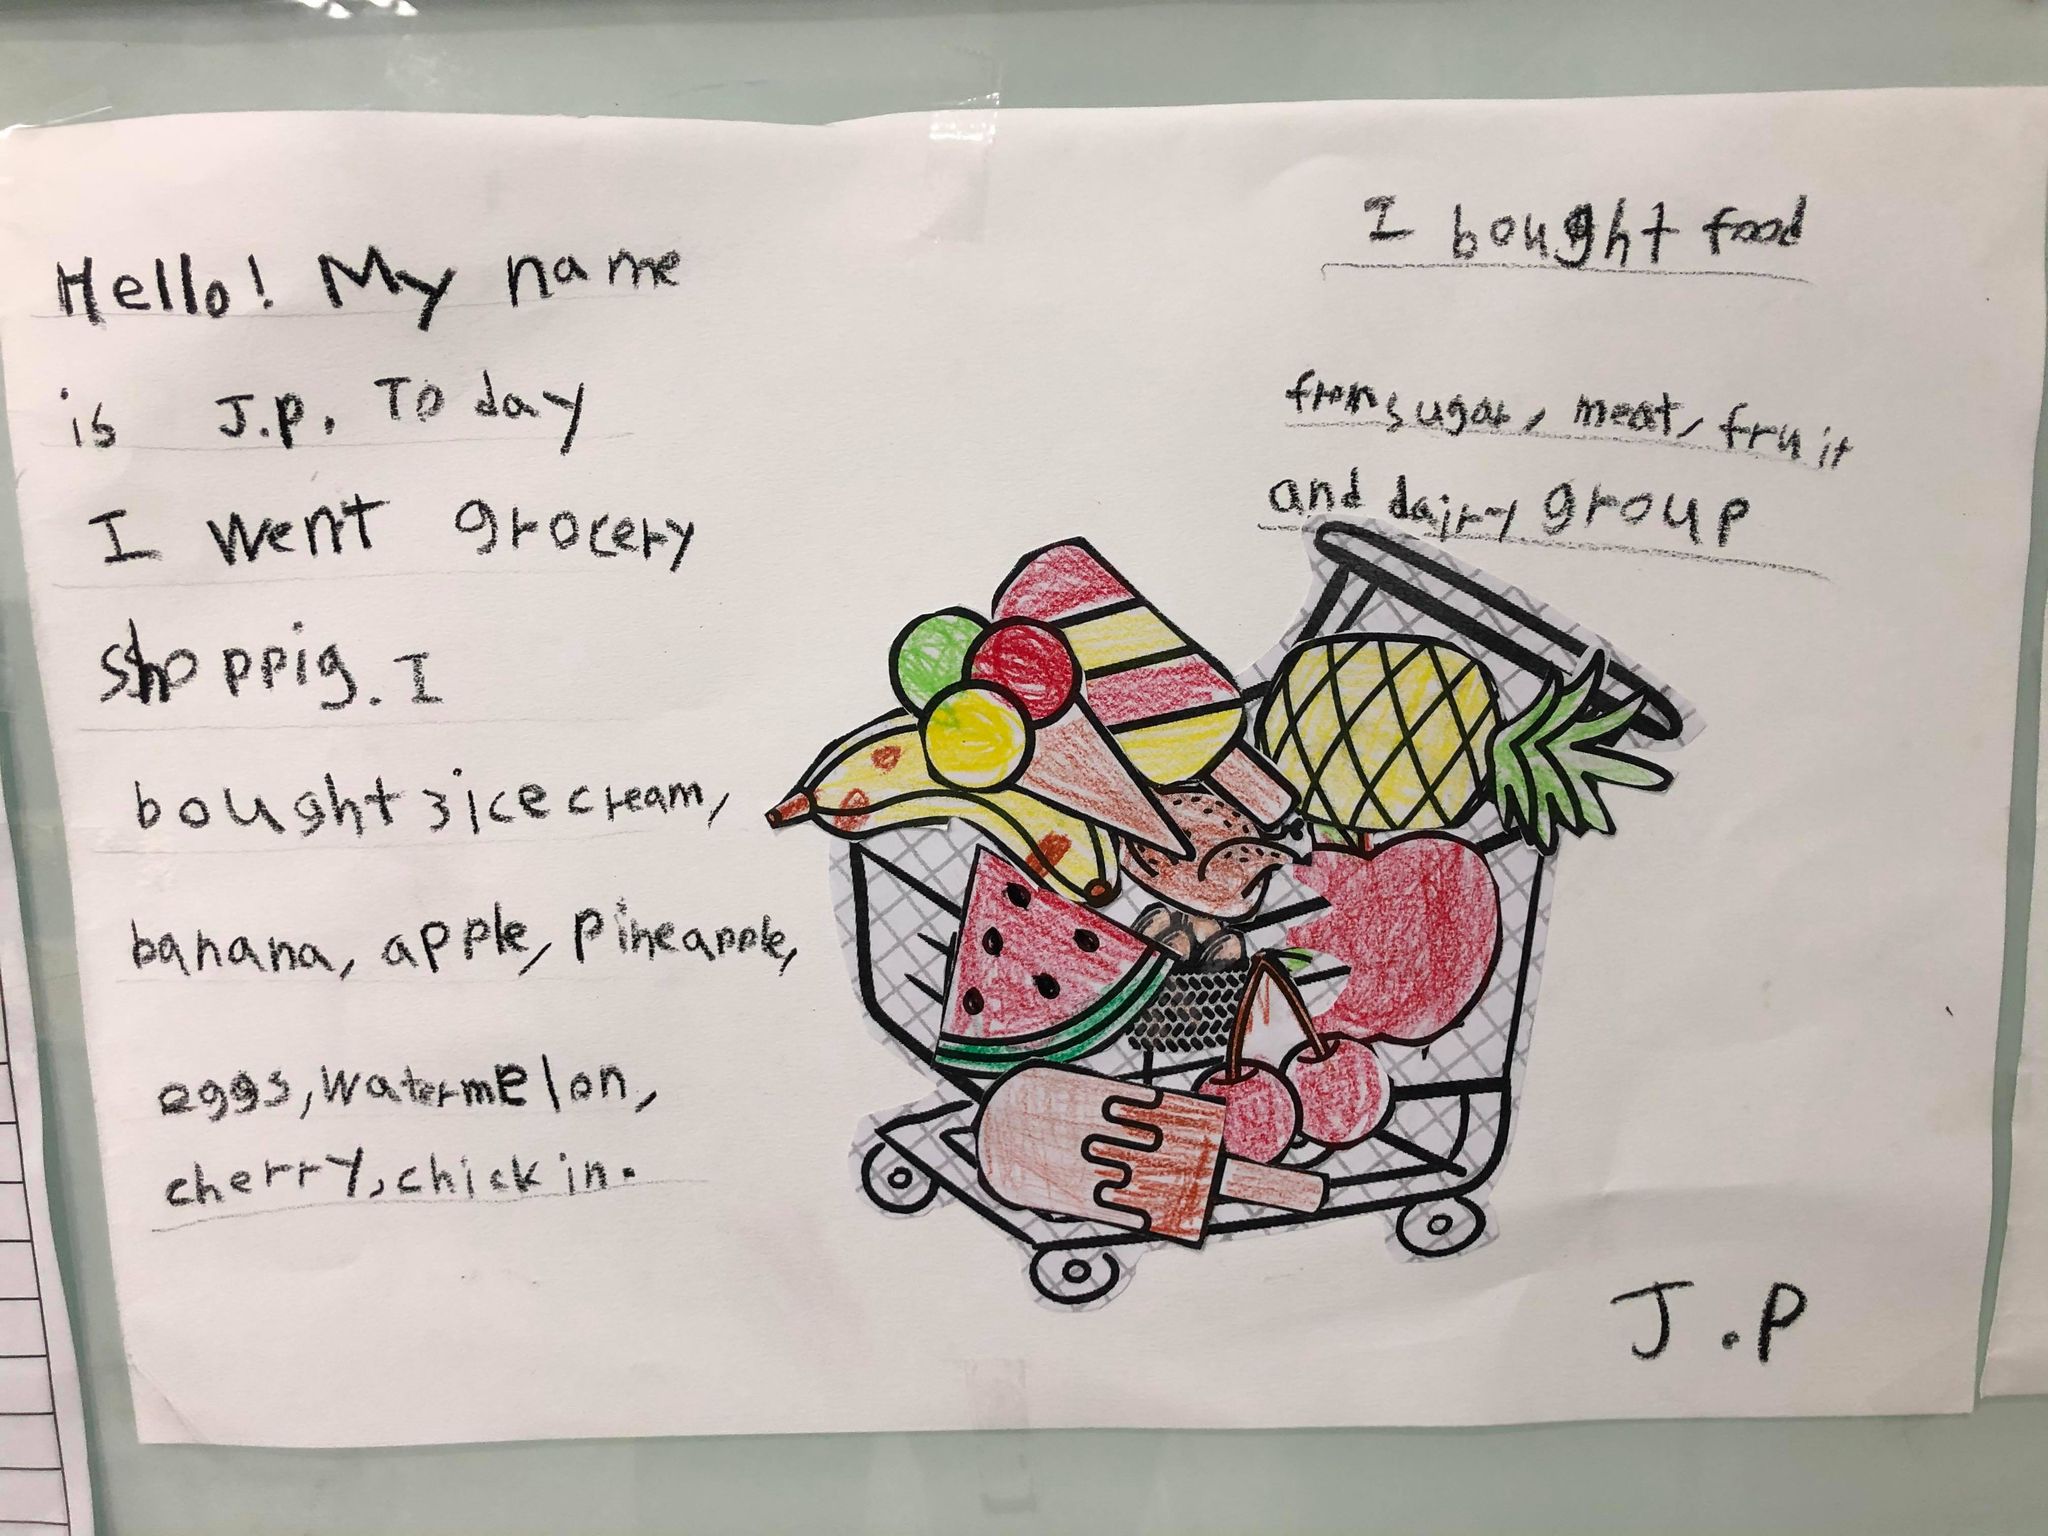 Hello! My name
is J.P. Today
I went grocery
shoppig. I
bought 3 ice cream,
banana, apple, pineapple,
eggs, watermelon,
cherry, chickin.
I bought food
from sugar, meat, fruit
and dairy group
J.P